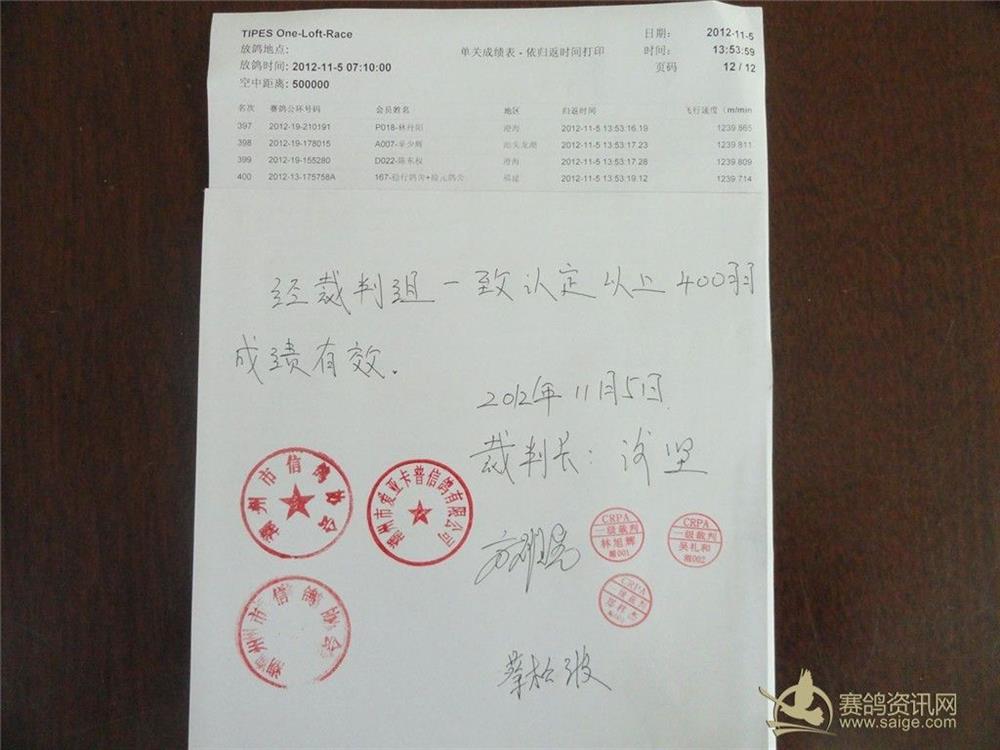 TIPES One-Loft-Race
日期: 2012-11-5
放鸽地点:
单关成绩表 - 依归返时间打印
时间: 13:53:59
放鸽时间: 2012-11-5 07:10:00
页码 12 / 12
空中距离: 500000
名次 赛鸽公环号码 会员姓名 地区 归返时间 飞行速度 (m/min
397 2012-19-210191 P018-林丹阳 澄海 2012-11-5 13:53:16.19 1239.865
398 2012-19-178015 A007-辛少辉 汕头龙湖 2012-11-5 13:53:17.23 1239.811
399 2012-19-155280 D022-陈东权 澄海 2012-11-5 13:53:17.28 1239.809
400 2012-13-175758A 167- 福建 2012-11-5 13:53:19.12 1239.714
经裁判组一致认定以上400羽
成绩有效.
2012年11月5日
裁判长: 坚
潮州市信鸽协会
潮州市爱亚卡普信鸽有限公司
CRPA
一级裁判
林旭辉
潮001
CRPA
一级裁判
吴礼和
潮002
潮州市信鸽协会
CRPA
一级裁判
蔡松波
赛鸽资讯网
www.saige.com